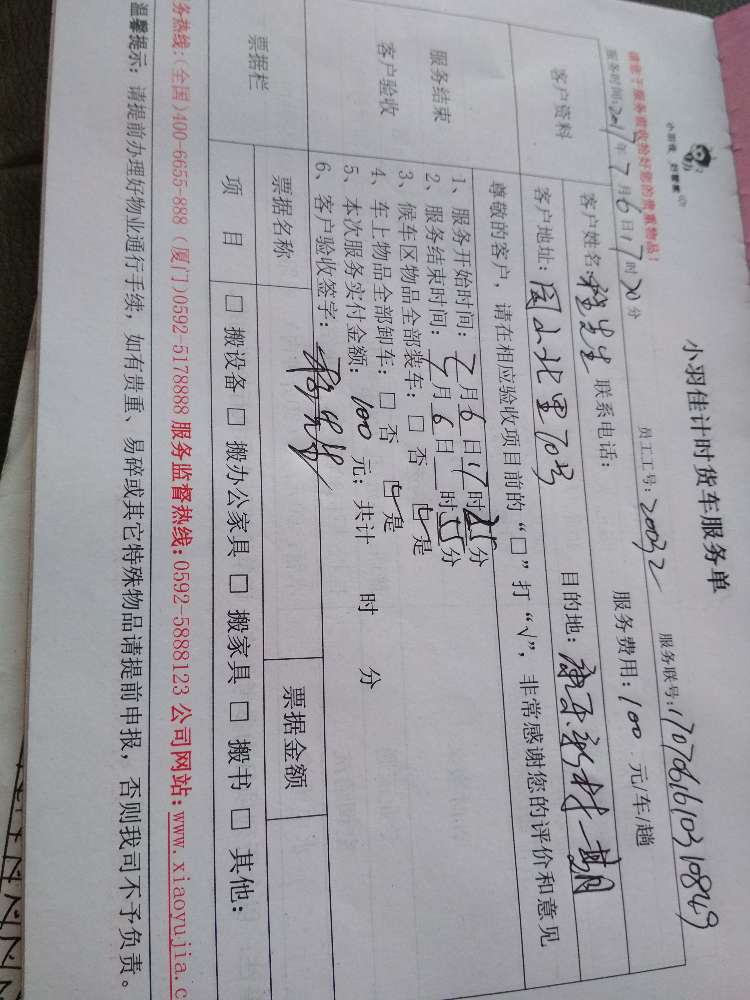 小羽佳计时货车服务单
请您于服务前收拾好您的贵重物品!
服务时间:2017年7月6日17时20分 员工工号:20032 服务联号:1707061610310849
客户资料
客户姓名: 先生 联系电话: 服务费用:100.元/车/趟
客户地址: 山北里70号 目的地: 新村一期
尊敬的客户,请在相应验收项目前的“□”打“√”,非常感谢您的评价和意见
服务结束
客户验收
1、服务开始时间:7月6日17时25分
2、服务结束时间:7月6日 时55分
3、候车区物品全部装车:□ 否 ☑是
4、车上物品全部卸车:□ 否 ☑是
5、本次服务实付金额:100元;共计 时 分
6、客户验收签字:
票据栏
票据名称 票据金额
项 目 □ 搬设备 □ 搬办公家具 □ 搬家具 □ 搬书 □ 其他:
务热线:(全国)400-6655-888 (厦门)0592-5178888 服务监督热线:0592-5888123 公司网站:www.xiaoyujia.c
温馨提示: 请提前办理好物业通行手续,如有贵重、易碎或其它特殊物品请提前申报,否则我司不予负责。